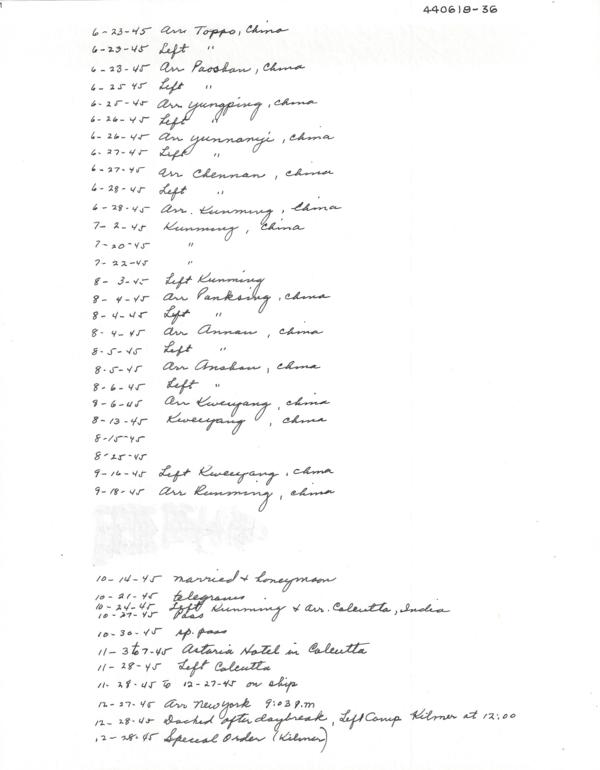 440618-36
6-23-45 Arr Toppo, China
6-23-45 Left "
6-23-45 Arr Paoshan, China
6-25-45 Left "
6-25-45 Arr Yungping, China
6-26-45 Left "
6-26-45 Arr Yunnanyi, China
6-27-45 Left "
6-27-45 Arr Chennan, China
6-28-45 Left "
6-28-45 Arr. Kunming, China
7-2-45 Kunming, China
7-20-45 "
7-22-45 "
8-3-45 Left Kunming
8-4-45 Arr Panksing, China
8-4-45 Left "
8-4-45 Arr Annan, China
8-5-45 Left "
8-5-45 Arr Anshan, China
8-6-45 Left "
8-6-45 Arr Kweiyang, China
8-13-45 Kweiyang, China
8-15-45
8-25-45
9-16-45 Left Kweiyang, China
9-18-45 Arr Kunming, China
10-14-45 married & honeymoon
10-21-45 telegrams
10-24-45 Left Kunming & Arr. Calcutta, India
10-27-45 Pass
10-30-45 sp. pass
11-3 to 7-45 Astoria Hotel in Calcutta
11-28-45 Left Calcutta
11-28-45 to 12-27-45 on ship
12-27-45 Arr New York 9:03 P.M
12-28-45 Docked after daybreak, Left Camp Kilmer at 12:00
12-28-45 Special Order (Kilmer)